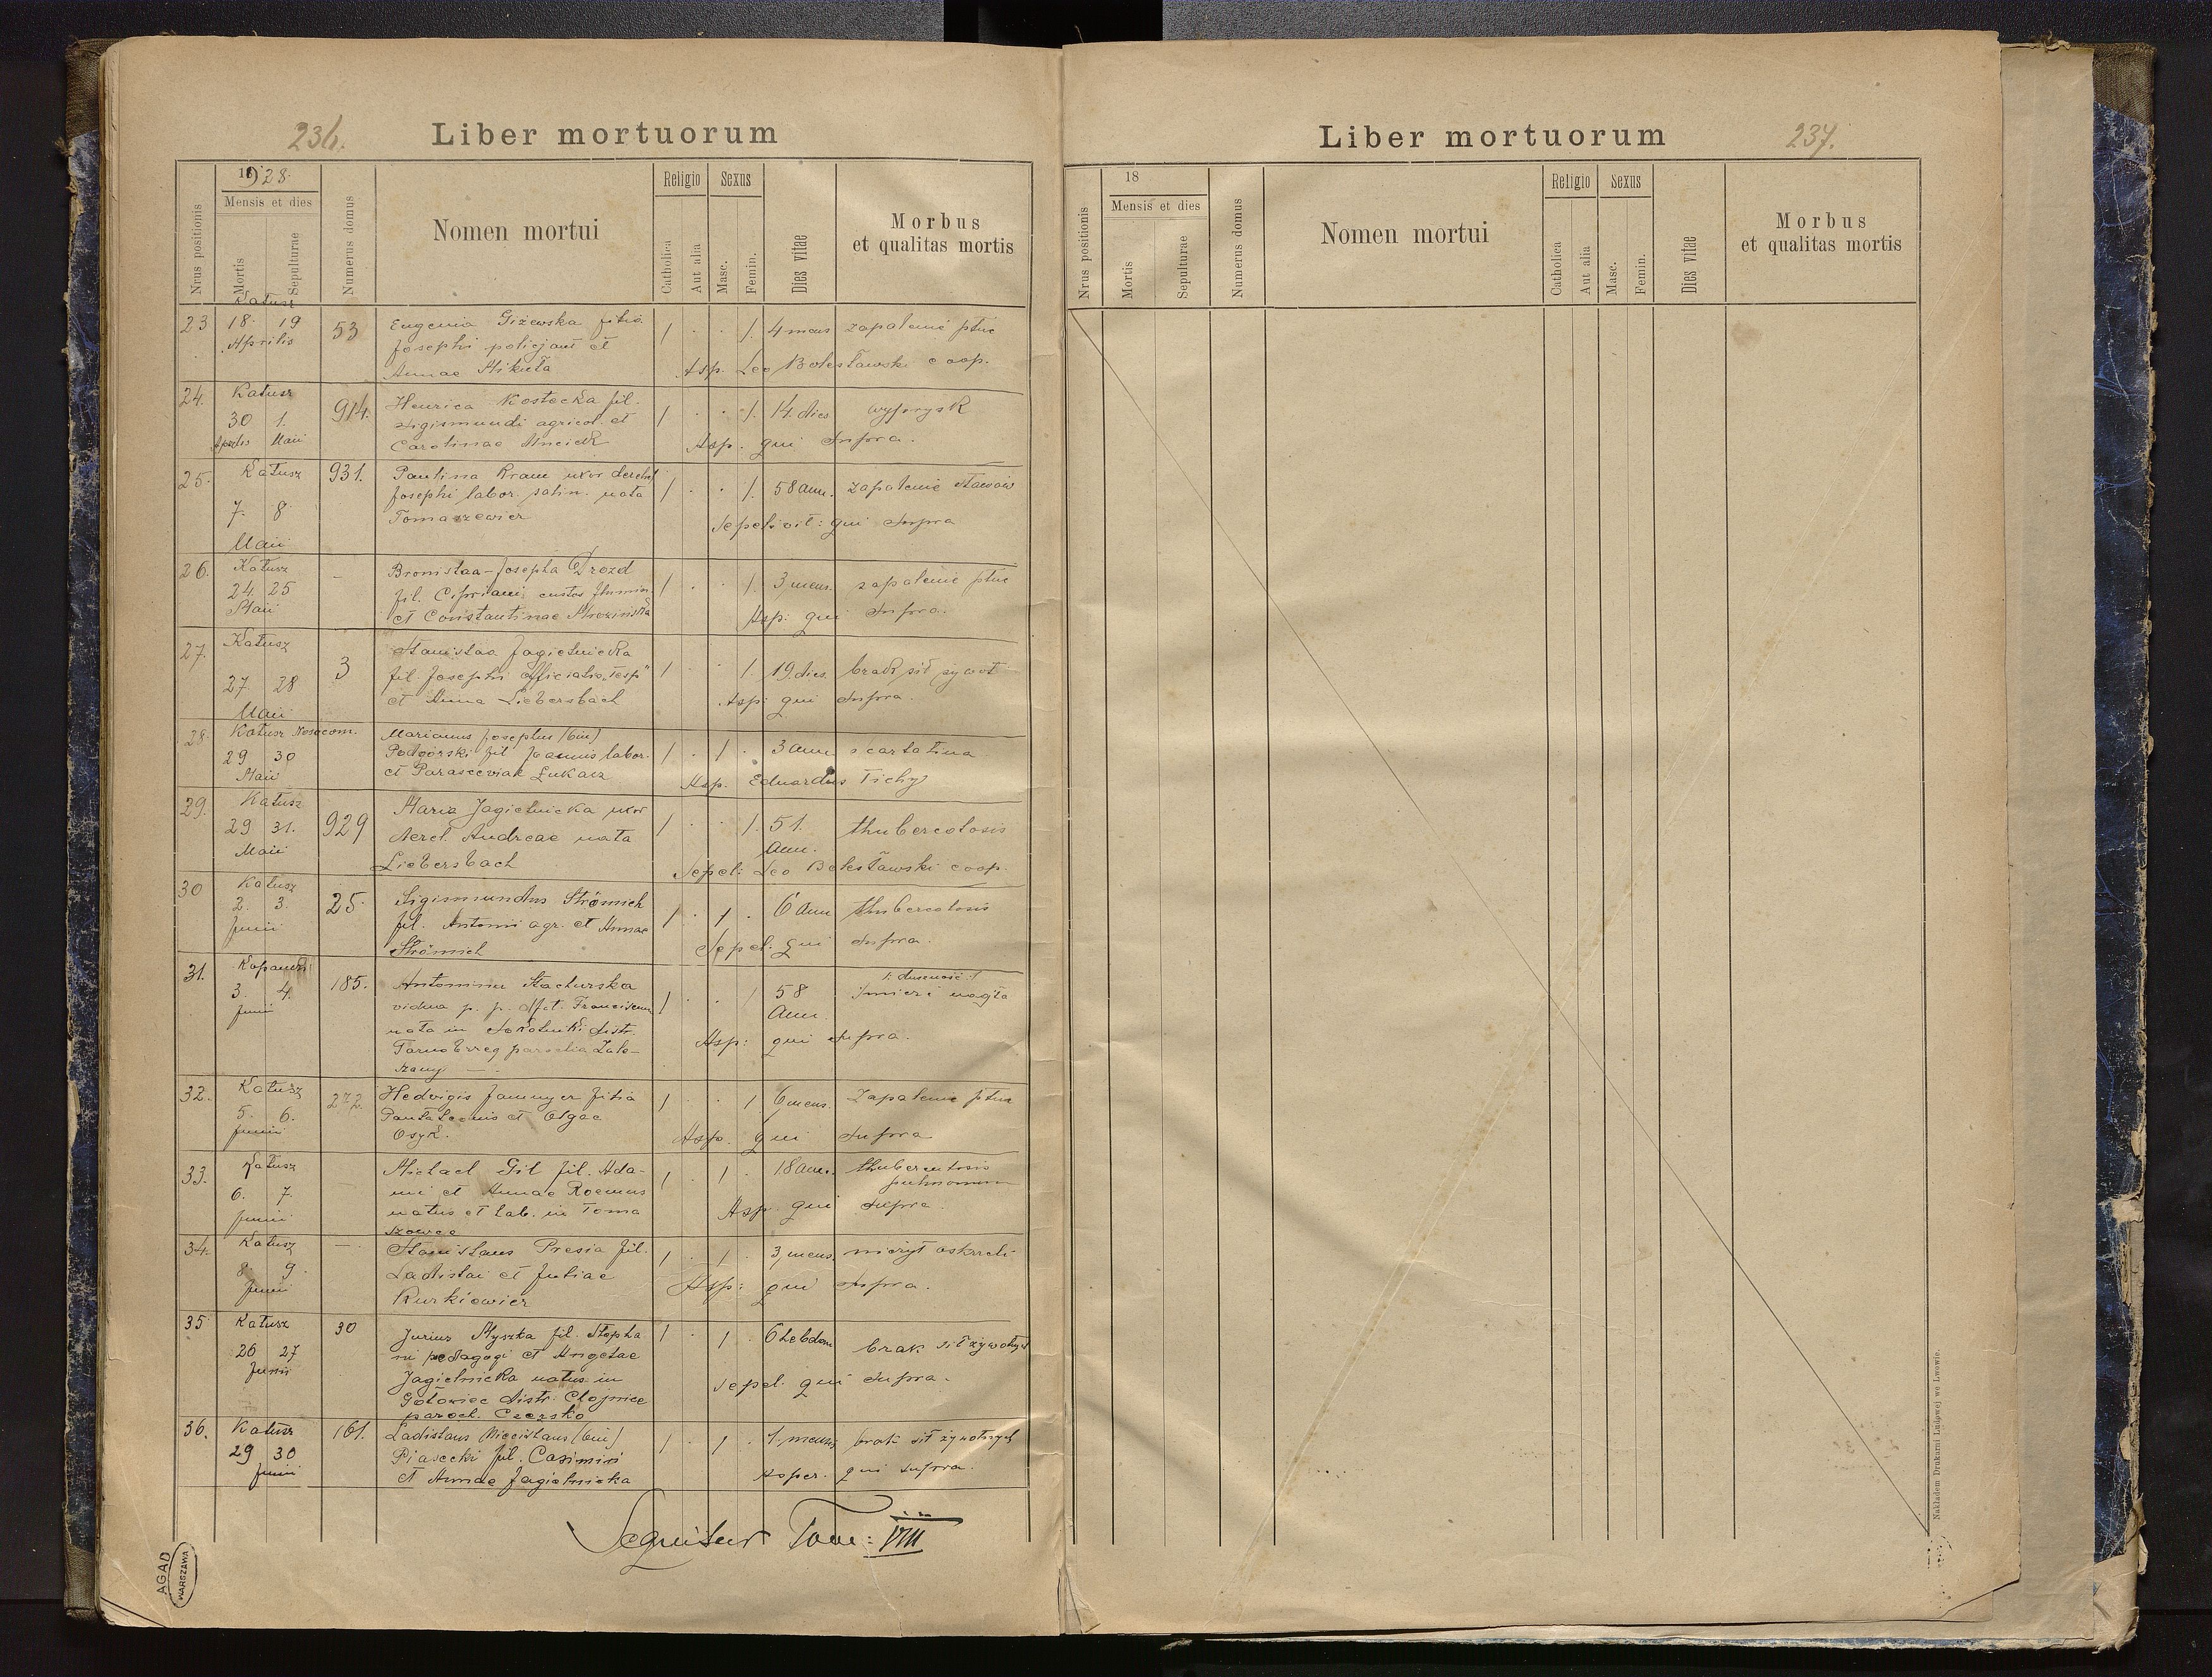 236.
Liber mortuorum
1928.
Mensis et dies
Nrus positionis
Mortis
Sepulturae
Numerus domus
Nomen mortui
Religio
Catholica
Aut alia
Sexus
Masc.
Femin.
Dies vitae
Morbus
et qualitas mortis
Kałusz
23 18 19 53 Eugenia Giżewska filia 1 . . 1. 4 mens zapalenie płuc
Aprilis Josephi policjant et
Annae Mikuła Asp. Leo Bolesławski coop.
24. Kałusz 914. Henrica Kostecka fil. 1 . . 1. 14 dies wyprysk
30 1. Sigismundi agricol. et
Aprilis Maii Carolinae Asp. qui supra.
25. Kałusz 931. Paulina Kram uxor derel. 1 . . 1. 58 ann. zapalenie stawów
7. 8 Josephi labor. salin. nata
Tomaszewicz Sepelivit: qui supra
Maii
26. Kałusz – Bronislaa-Josepha Drozd 1 . . 1. 3 mens. zapalenie płuc
24. 25 fil. Cipriani custos
Maii et Constantinae Asp: qui supra.
27. Kałusz 3 Stanislaa Jagielnicka 1 . . 1 19 dies brak sił żywot
27 28 fil. Josephi officialis „Tesp"
Maii et Anna Liebersbach Asp: qui supra.
28. Kałusz Nosocom. Marianus Josephus (bin) 1 . 1 . 3 ann scarlatina
29 30 Podgórski fil Joannis labor.
Maii et Parasceviae Łukacz Asp. Eduardus Tichy
29. Kałusz 929 Maria Jagielnicka uxor 1 . . 1. 51. thubercolosis
29 31. derel. Andreae nata ann.
Maii Liebersbach Sepel: Leo Bolesławski coop.
30 Kałusz 25. Sigismundus Strömich 1 . 1 . 6 ann thubercolosis
2. 3. fil. Antonii agr. et Annae
Junii Strömich Sepel: qui supra.
31. Kopanki 185. Antonina Stachurska 1 . . 1 58 /: duszność :/
3. 4. vidua p. p. Franciscum ann. śmierć nagła
Junii nata in distr.
Tarnobrzeg parochia Zale- Asp: qui supra.
szany —
32. Kałusz 272. Hedvigis Jammyer filia 1 . . 1 6 mens Zapalenie płuc
5. 6. Pantaleonis et Olgae
Junii Osyk. Asp. qui supra
33. Kałusz Michael Gil fil. Ada- 1 . 1 . 18 ann. thuberculosis
6. 7. mi et Annae pulmonum
Junii natus et lab. in Toma Asp qui supra.
szowce
34. Kałusz — Stanislaus Presia fil. 1 . 1 . 3 mens. nieżyt oskrzeli
8. 9. Ladislai et Juliae
Junii Kurkiewicz Asp: qui supra.
35 Kałusz 30 Jurius Myszka fil. Stepha 1 . 1 6 hebdom brak sił żywotnych
26 27 ni pedagogi et Angelae
Junii Jagielnicka natus in Sepel: qui supra.
Gotowiec distr. Chojnice
paroch. Czersko
36. Kałusz 161. Ladislaus Miecislaus (bin) 1 . 1 . 1. mens. brak sił żywotnych
29 30 Piasecki fil. Casimiri
Junii et Annae Jagielnicka Asper. qui supra.
Sequitur Tom: VIII
AGAD
WARSZAWA
Liber mortuorum
237.
18
Mensis et dies
Nrus positionis
Mortis
Sepulturae
Numerus domus
Nomen mortui
Religio
Catholica
Aut alia
Sexus
Masc.
Femin.
Dies vitae
Morbus
et qualitas mortis
Nakładem Drukarni Ludowej we Lwowie.